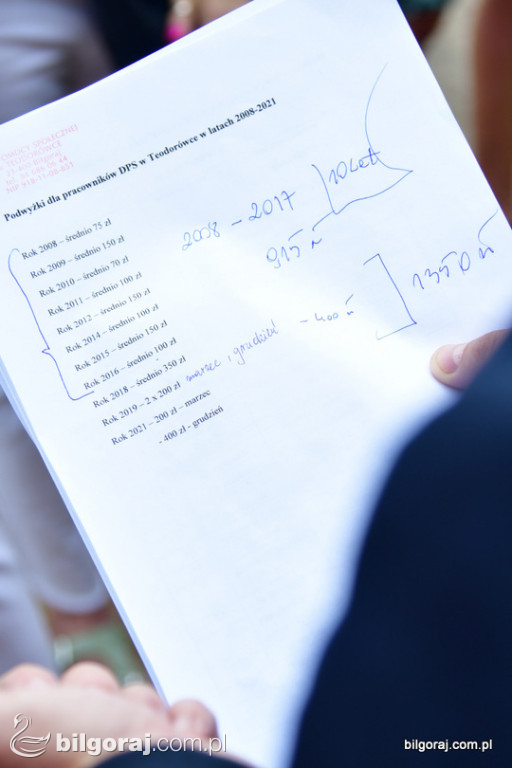 POMOCY SPOŁECZNEJ
Podwyżki dla pracowników DPS w Teodorówce w latach 2008-2021
Rok 2008 – średnio 75 zł
Rok 2009 – średnio 150 zł
Rok 2010 – średnio 70 zł
Rok 2011 – średnio 100 zł
Rok 2012 – średnio 150 zł
Rok 2014 – średnio 100 zł
Rok 2015 – średnio 150 zł
Rok 2016 – średnio 100 zł
Rok 2018 – średnio 350 zł
Rok 2019 – 2 x 200 zł marzec, grudzień – 400 zł
Rok 2021 – 200 zł – marzec
- 400 zł - grudzień
2008 – 2017 10 lat
915 zł
1350 zł
bilgoraj.com.pl
bilgoraj.com.pl